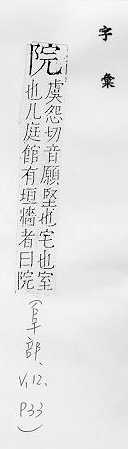 字彙
院
虞怨切音願堅也宅也室
也凡庭館有垣牆者曰院
(阜部、V,12、P33)